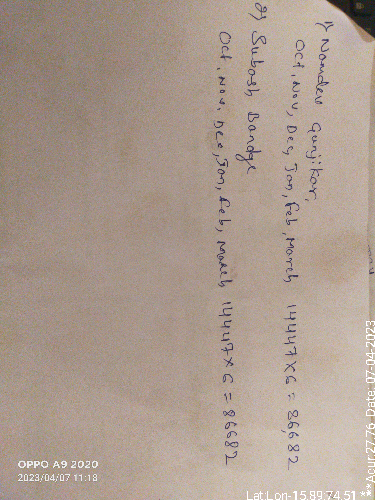 1) Namdev Gunjikar,
Oct, Nov, Dec, Jan, Feb, March 14447 x 6 = 86,682
2) Subash Bandge
Oct, Nov, Dec, Jan, Feb, March 14447 x 6 = 86682
OPPO A9 2020
2023/04/07 11:18
Lat Lon-15.89:74.51 ***Acur:27.76 Date: 07-04-2023